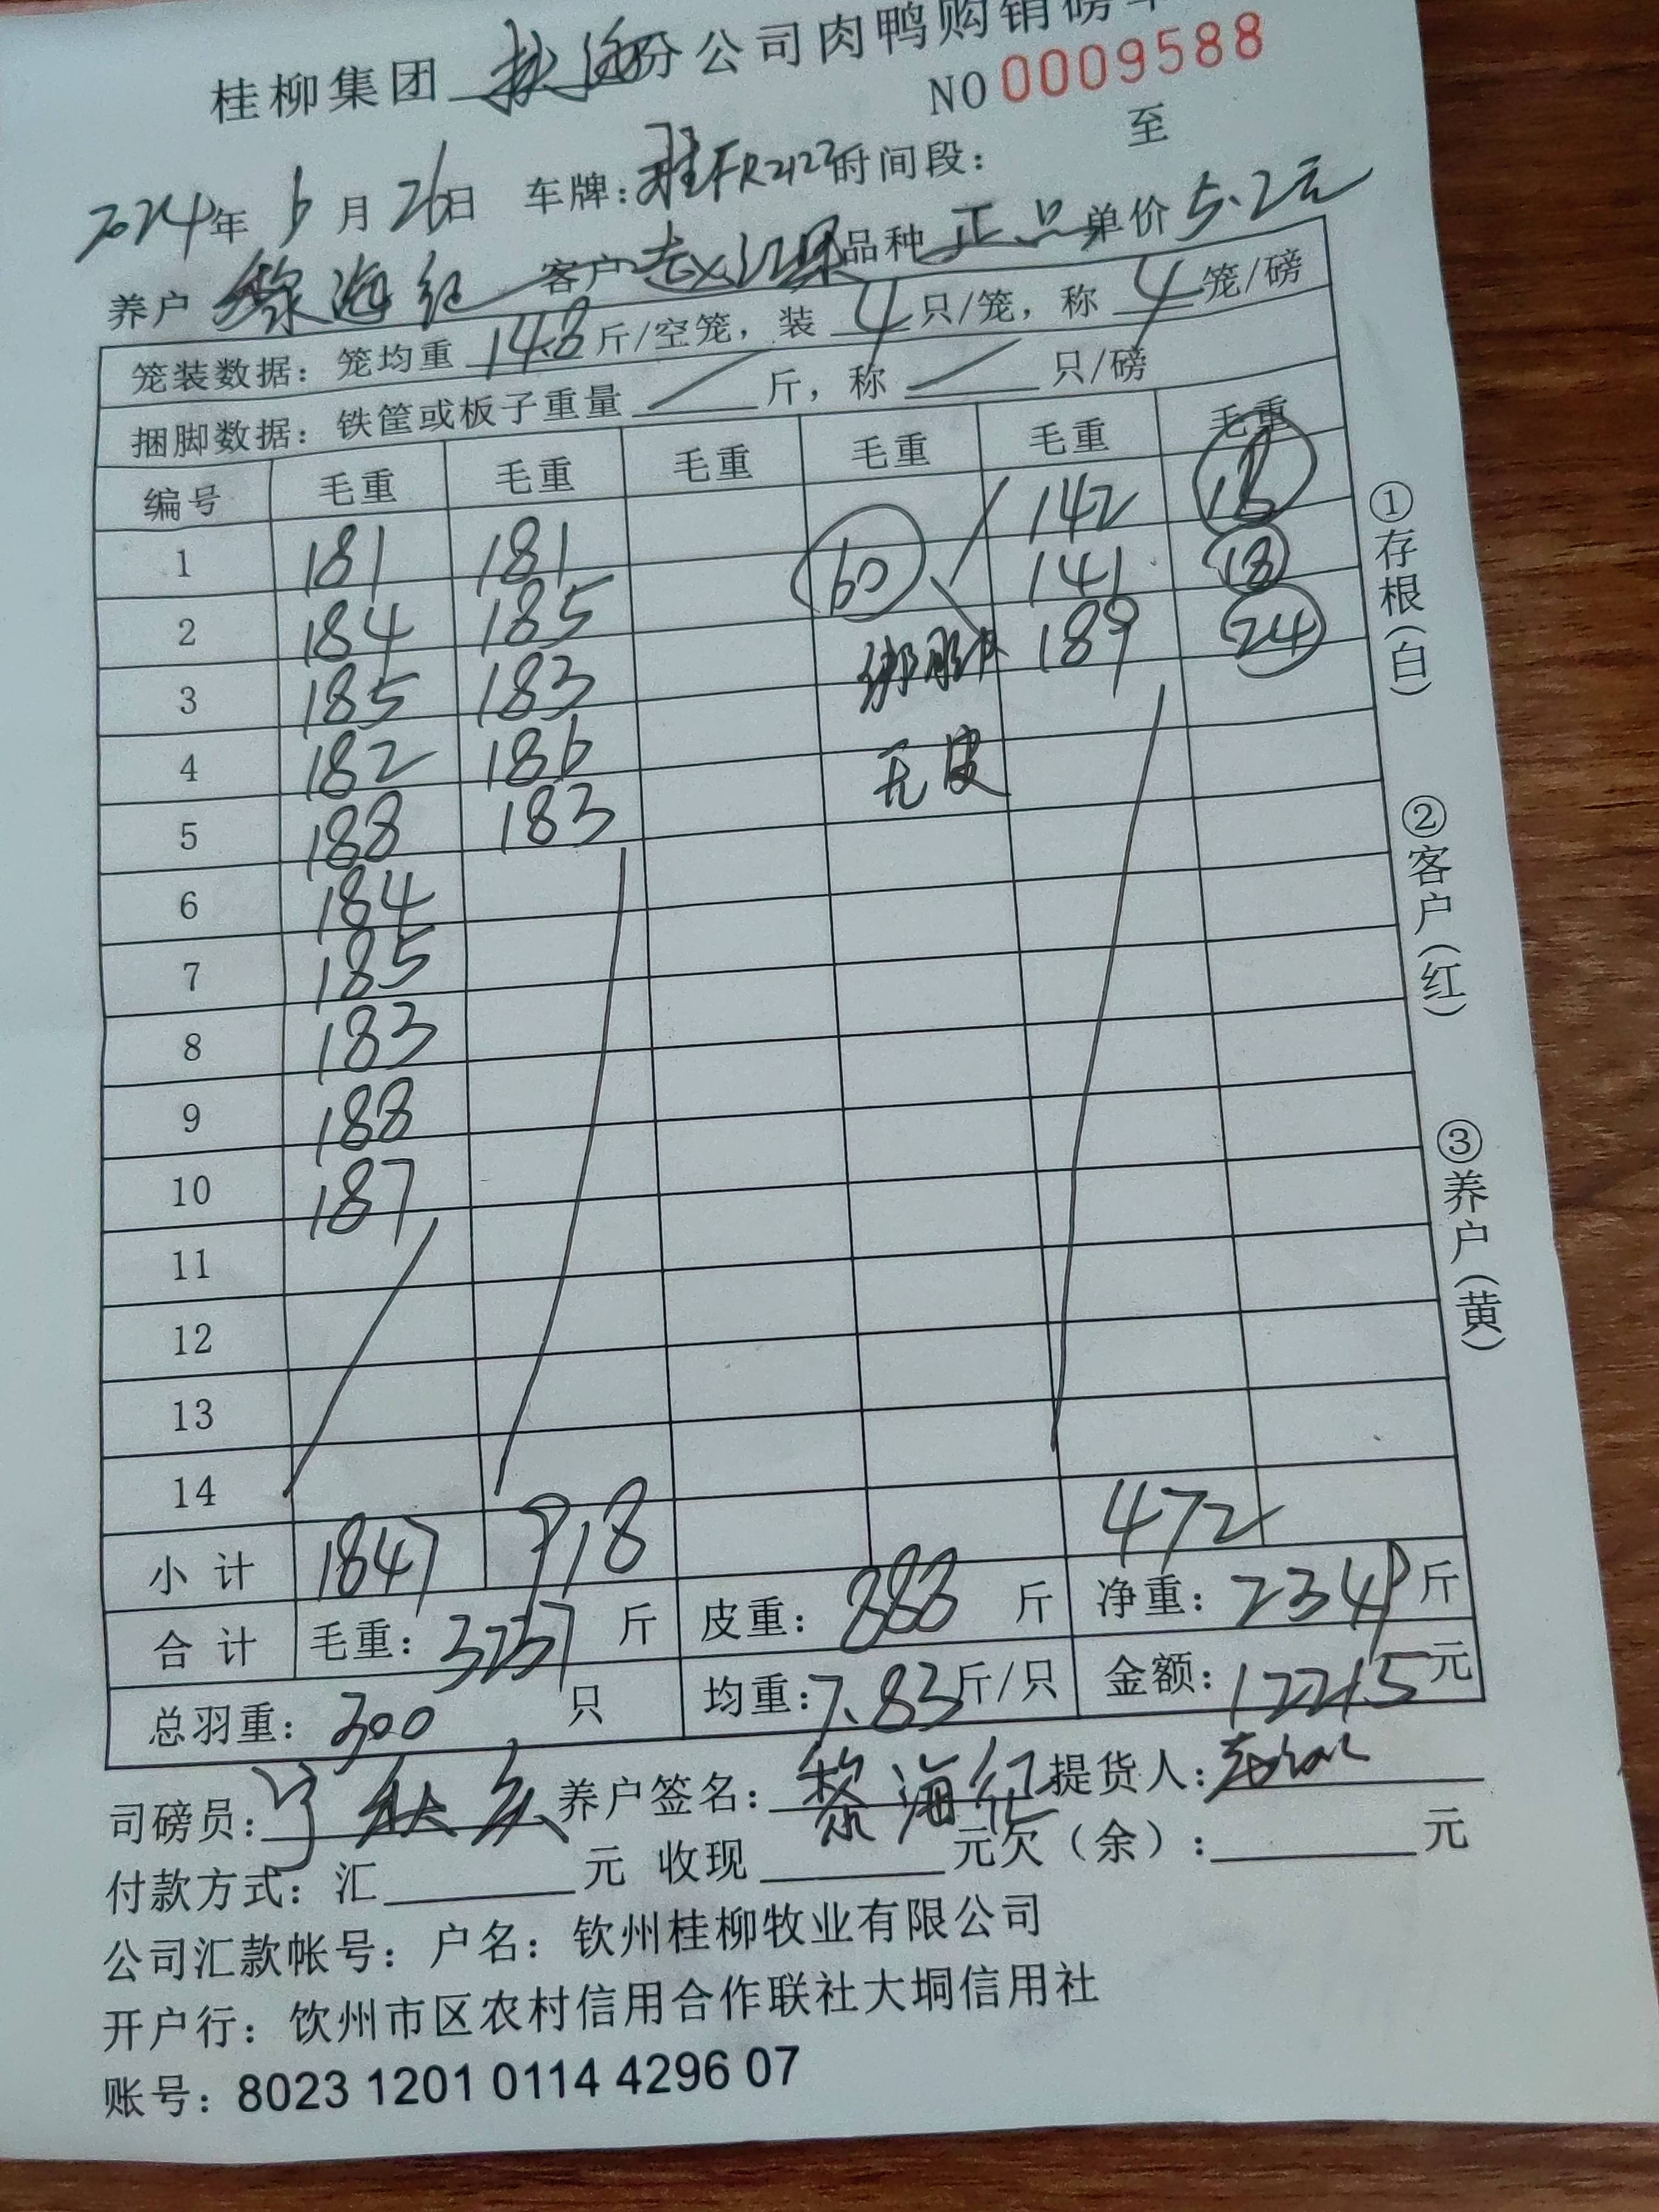 桂柳集团 分公司肉鸭购销磅单
NO 0009588
2024年 6月 26日 车牌: 桂FR2122 时间段: 至
养户 黎海红 客户 品种 正品 单价 5.2元
笼装数据: 笼均重 14.8 斤/空笼, 装 4 只/笼, 称 4 笼/磅
捆脚数据: 铁筐或板子重量 / 斤, 称 / 只/磅
编号 毛重 毛重 毛重 毛重 毛重 毛重
1 181 181 60 142 18
2 184 185 141 18
3 185 183 绑脚 189 24
4 182 186 无皮
5 188 183
6 184
7 185
8 183
9 188
10 187
11
12
13
14
小计 1847 918 472
合计 毛重: 3237 斤 皮重: 888 斤 净重: 2349 斤
总羽重: 300 只 均重: 7.83 斤/只 金额: 12215 元
司磅员: 养户签名: 黎海红 提货人:
付款方式: 汇 元 收现 元欠(余): 元
公司汇款帐号: 户名: 钦州桂柳牧业有限公司
开户行: 钦州市区农村信用合作联社大垌信用社
账号: 8023 1201 0114 4296 07
①存根(白)
②客户(红)
③养户(黄)